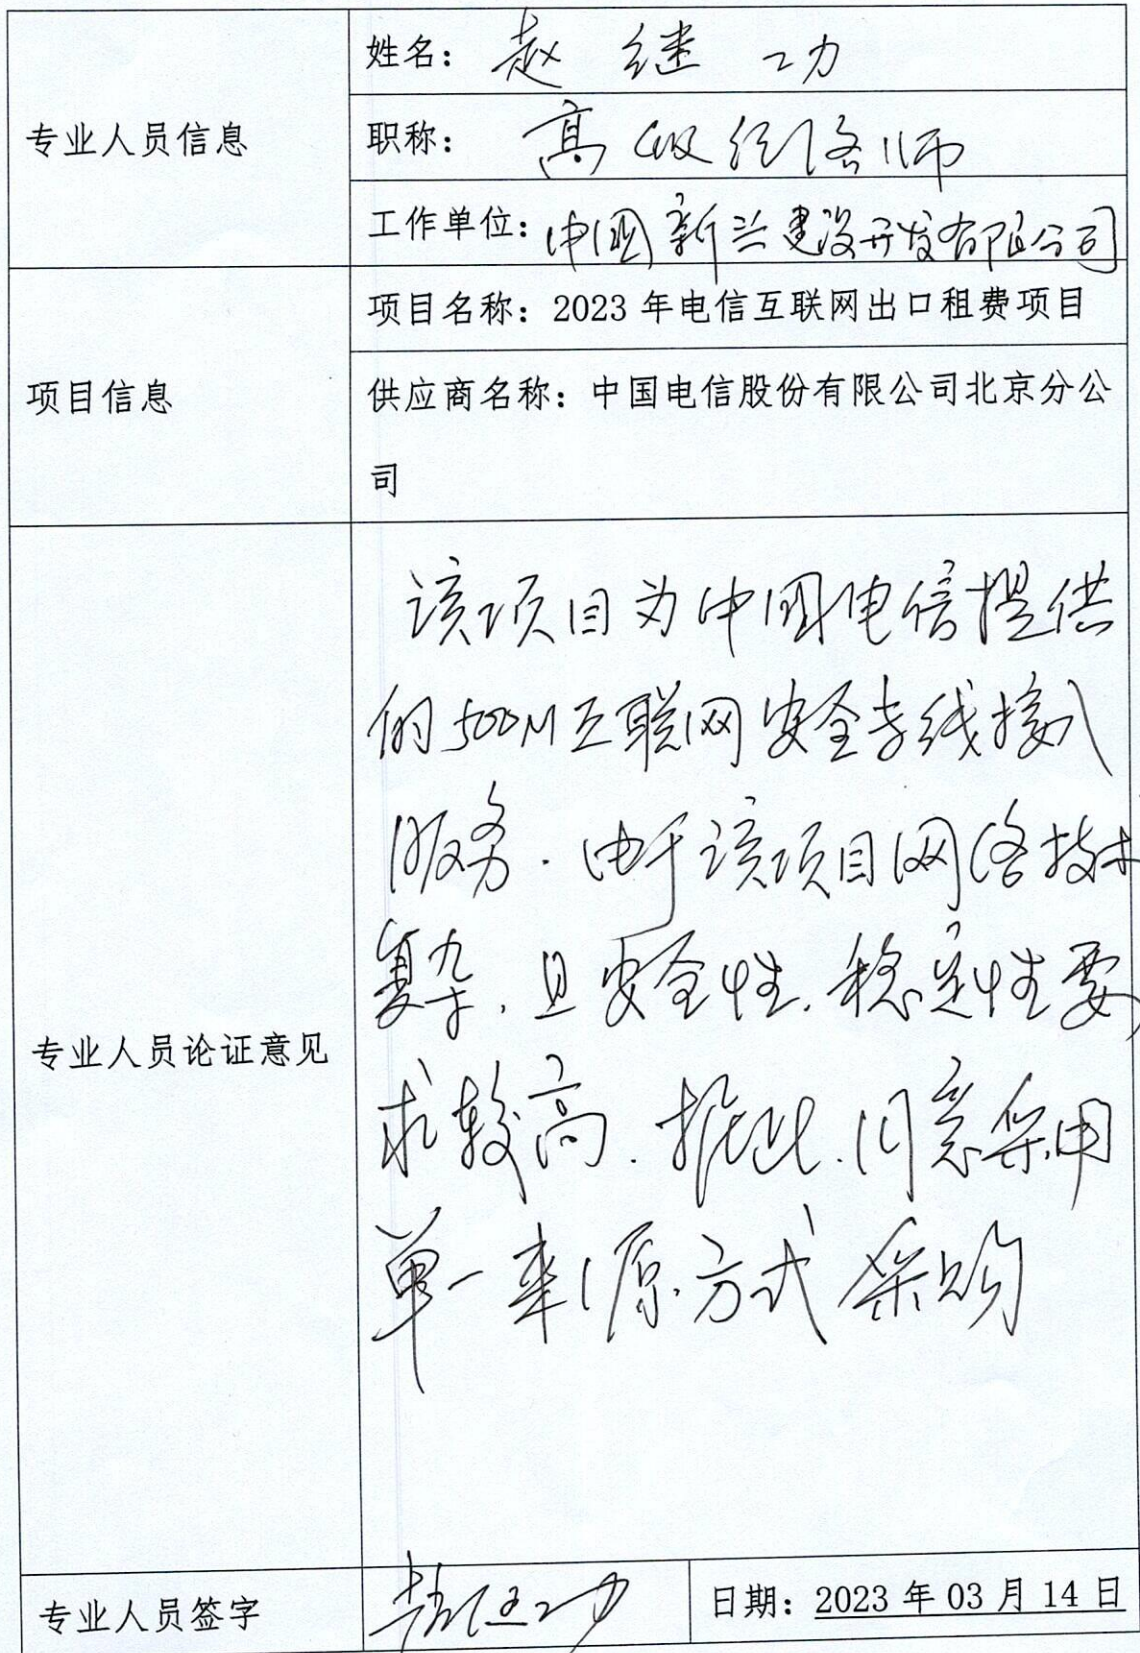 专业人员信息
姓名：赵继功
职称：高级经济师
工作单位：中国新兴建设开发有限公司
项目信息
项目名称：2023年电信互联网出口租费项目
供应商名称：中国电信股份有限公司北京分公
司
专业人员论证意见
该项目为中国电信提供
的500M互联网安全专线接入
服务.由于该项目网络技术
复杂,且安全性,稳定性要
求较高.据此.同意采用
单一来源方式采购
专业人员签字
赵继功
日期：2023年03月14日